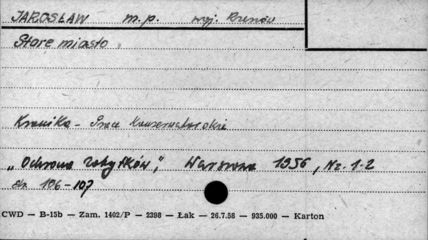 JAROSŁAW m.p. woj. Rzeszów
Stare miasto.
Kronika - Prace konserwatorskie
„Ochrona Zabytków", Warszawa 1956, Nr. 1-2
str. 106-107
CWD — B-15b — Zam. 1402/P — 2398 — Łak — 26.7.58 — 935.000 — Karton